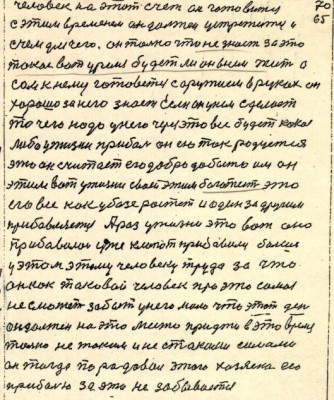 человек на этот счет он готовится 70
с этим временем он должен встретити и 65
с чем для чего. он только что не знает за это
такое вот время будет ли он в нем жить а
сам к нему готовется с оружием в руках он
хорошо за него знает если он у нем сделает
то чего надо у него чи это все будет какая
либо у жизни прибыл он ею так радуется
это он считает его добро добыто им он
этим вот у жизни своей этим богатеет это
его все как у базе растет и один за другим
прибавляету А раз у жизни это вот оно
прибавилось уже хлопот прибавили больше
у этом этому человеку труда за что
он как таковой человек про это самое
не сможет забыт у него мало что этот ден
он должен на это место придти в это время
только не таким и не с такими силами
он тогда порадовал этого хозяена его
прибылю за это не забывается